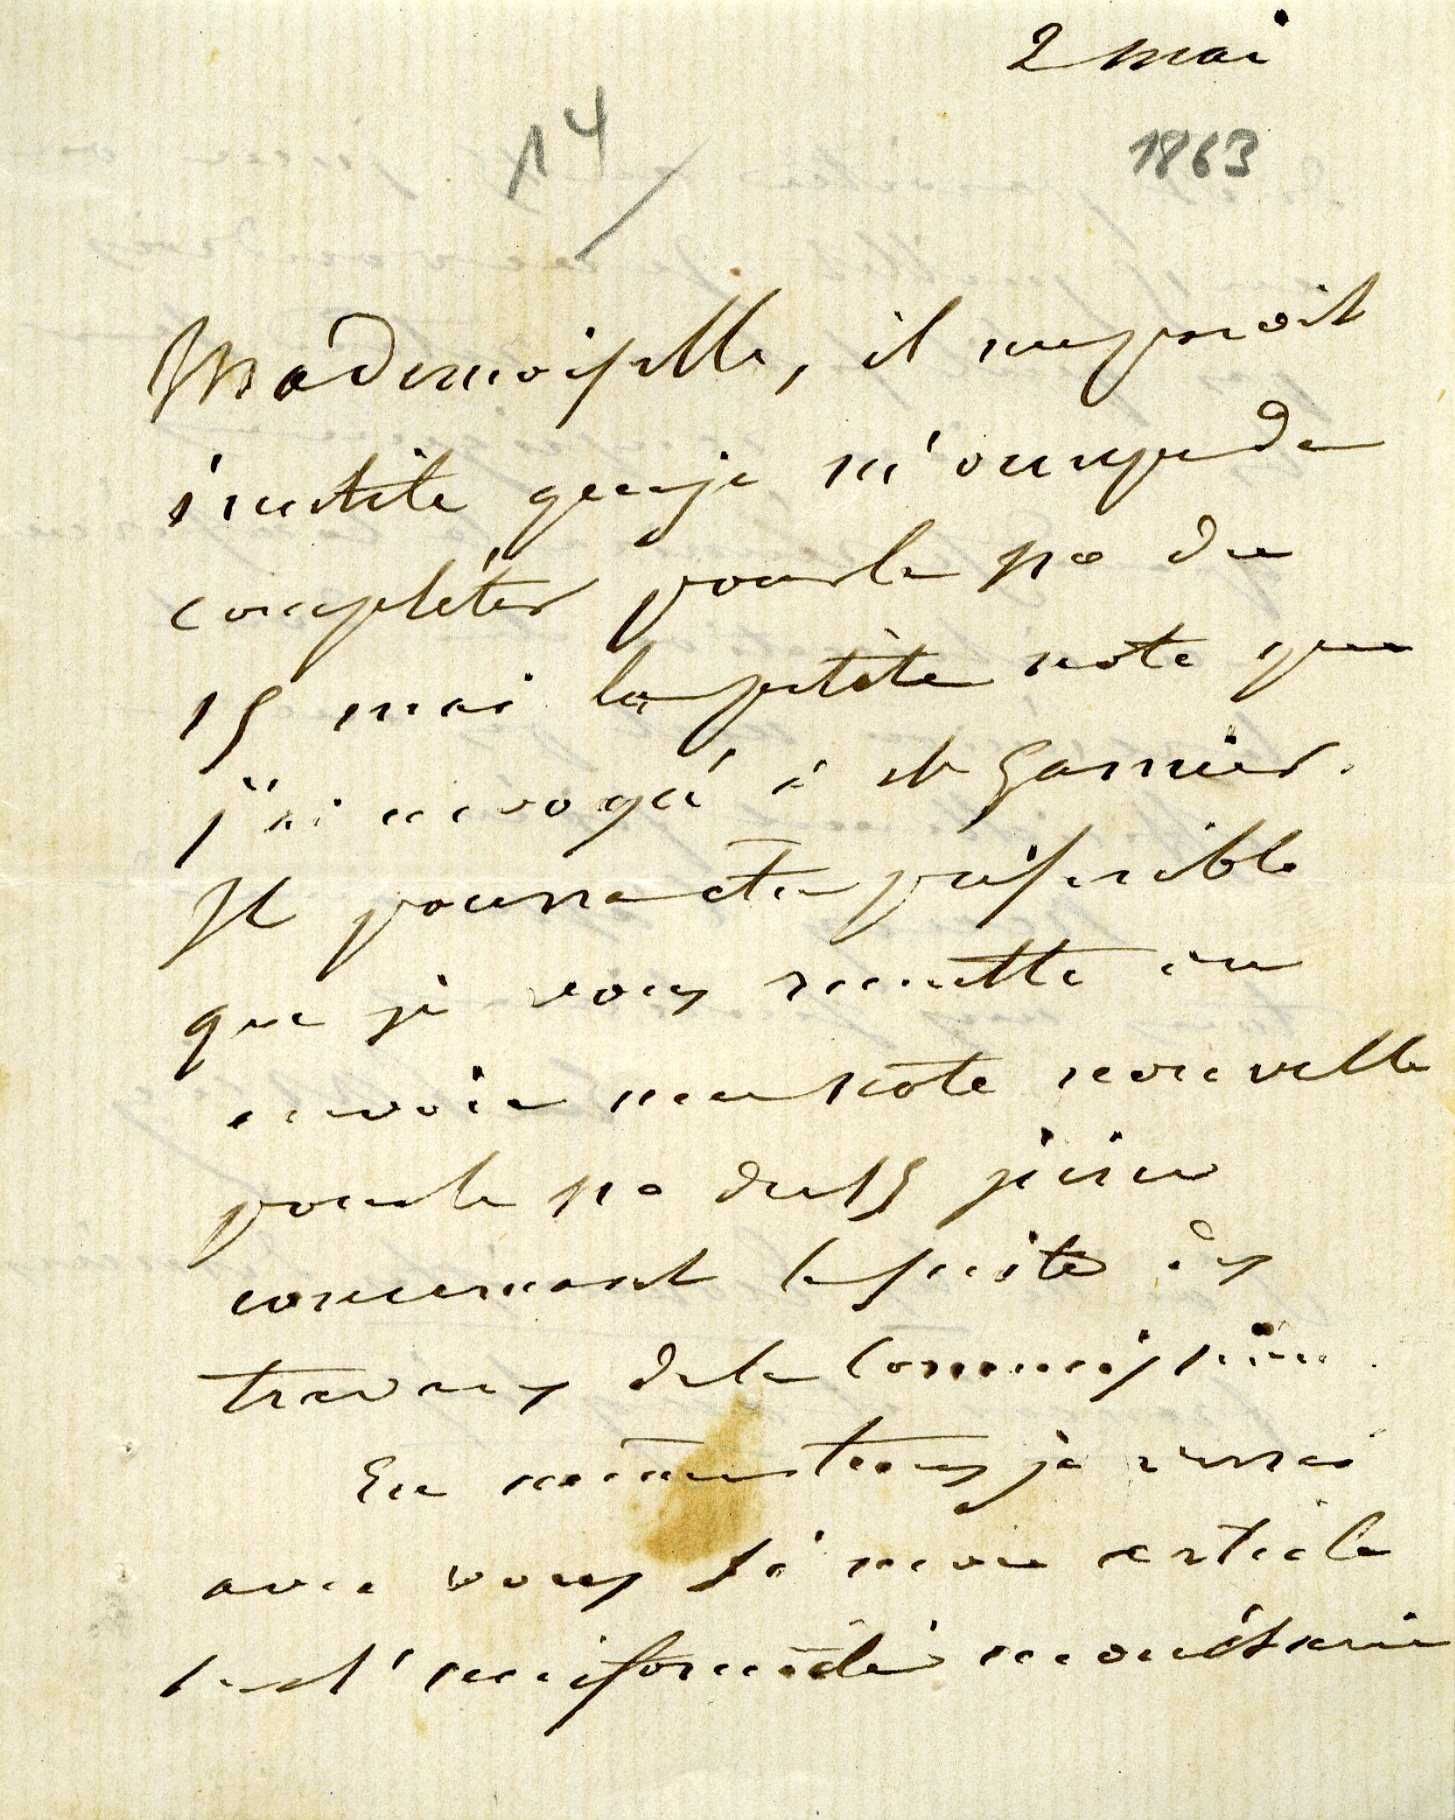 2 mai
1863
14
Mademoiselle, il me paroit
inutile que je m'occupe de
compléter pour le no du
15 mai la petite note que
j'ai envoyée à M Garnier.
Il pourra être préférible
que je vous remette ou
envoie une note nouvelle
pour le no du 15 juin
concernant la suite des
travaux de la Commission.
En même temps je verrai
avec vous si mon article
sur l'uniformité monétaire